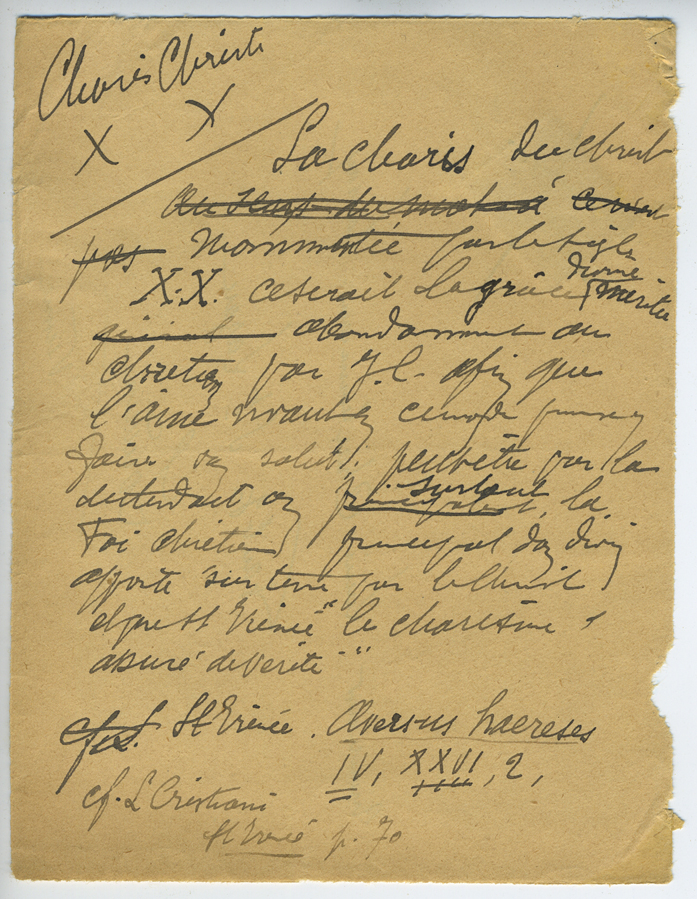 Charis Christi
X X
La charis du Christ
au temps du
pas Mommentée par le sigle
X.X. ce serait la grâce divine méritée
abondamment au
chrétien par J.C. afin que
l'âme vivant en ce monde
faire son salut, peut être par la
surtout, la
Foi chrétienne, principal don divin
apporté sur terre par le Christ
d'après St Irénée "le charisme
assuré de vérité"
cf. S. St Irénée. Aversus haereses
IV, XXVI, 2,
cf. L Cristiani
St Irénée p. 70